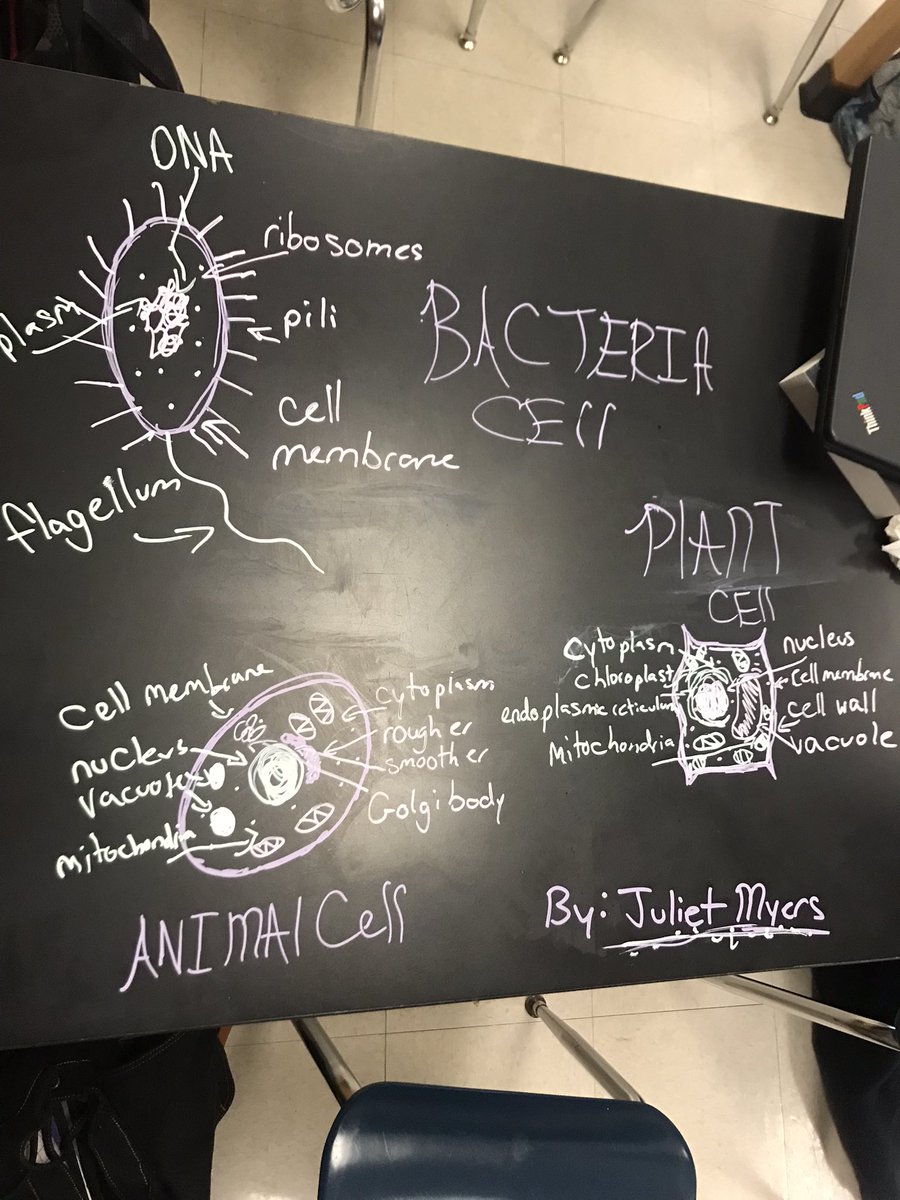 DNA
ribosomes
plasm
pili
BACTERIA
CEll
cell
membrane
flagellum
PlANT
CEll
cytoplasm
nucleus
chloroplast
cell membrane
endoplasmic reticulum
cell wall
mitochondria
vacuole
cell membrane
cytoplasm
nucleus
rough er
vacuole
smooth er
mitochondria
Golgi body
ANIMAl Cell
By: Juliet Myers
ThinkPad